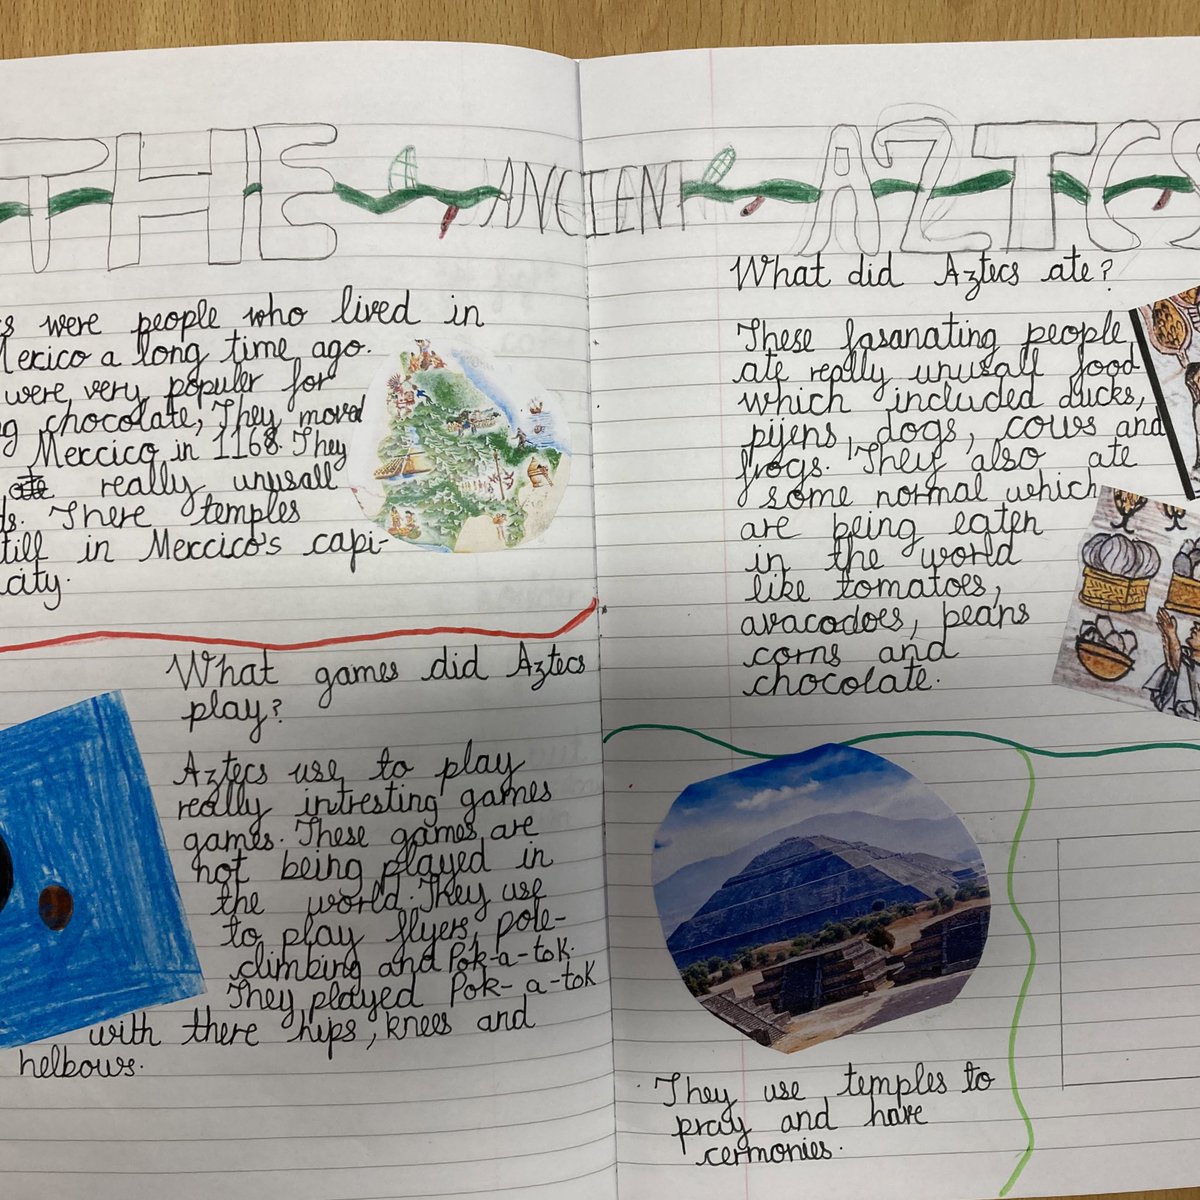 THE ANCIENT AZTCS
s were people who lived in
Mexico a long time ago.
were very populer for
g chocolate, They moved
Merccico in 1168. They
ate really unusall
ds. There temples
till in Merccico's capi-
city.
What games did Aztecs
play?
Aztecs use to play
really intresting games
games. These games are
not being played in
the world. They use
to play flyers, pole-
climbing and Pok-a-tok.
They played Pok-a-tok
with there hips, knees and
helbows.
What did Aztecs ate?
These fasanating people
ate really unusall food
which included ducks,
pijens, dogs, cows and
frogs. They also ate
some normal which
are being eaten
in the world
like tomatoes,
avacodoes, beans
corns and
chocolate.
They use temples to
pray and have
cermonies.